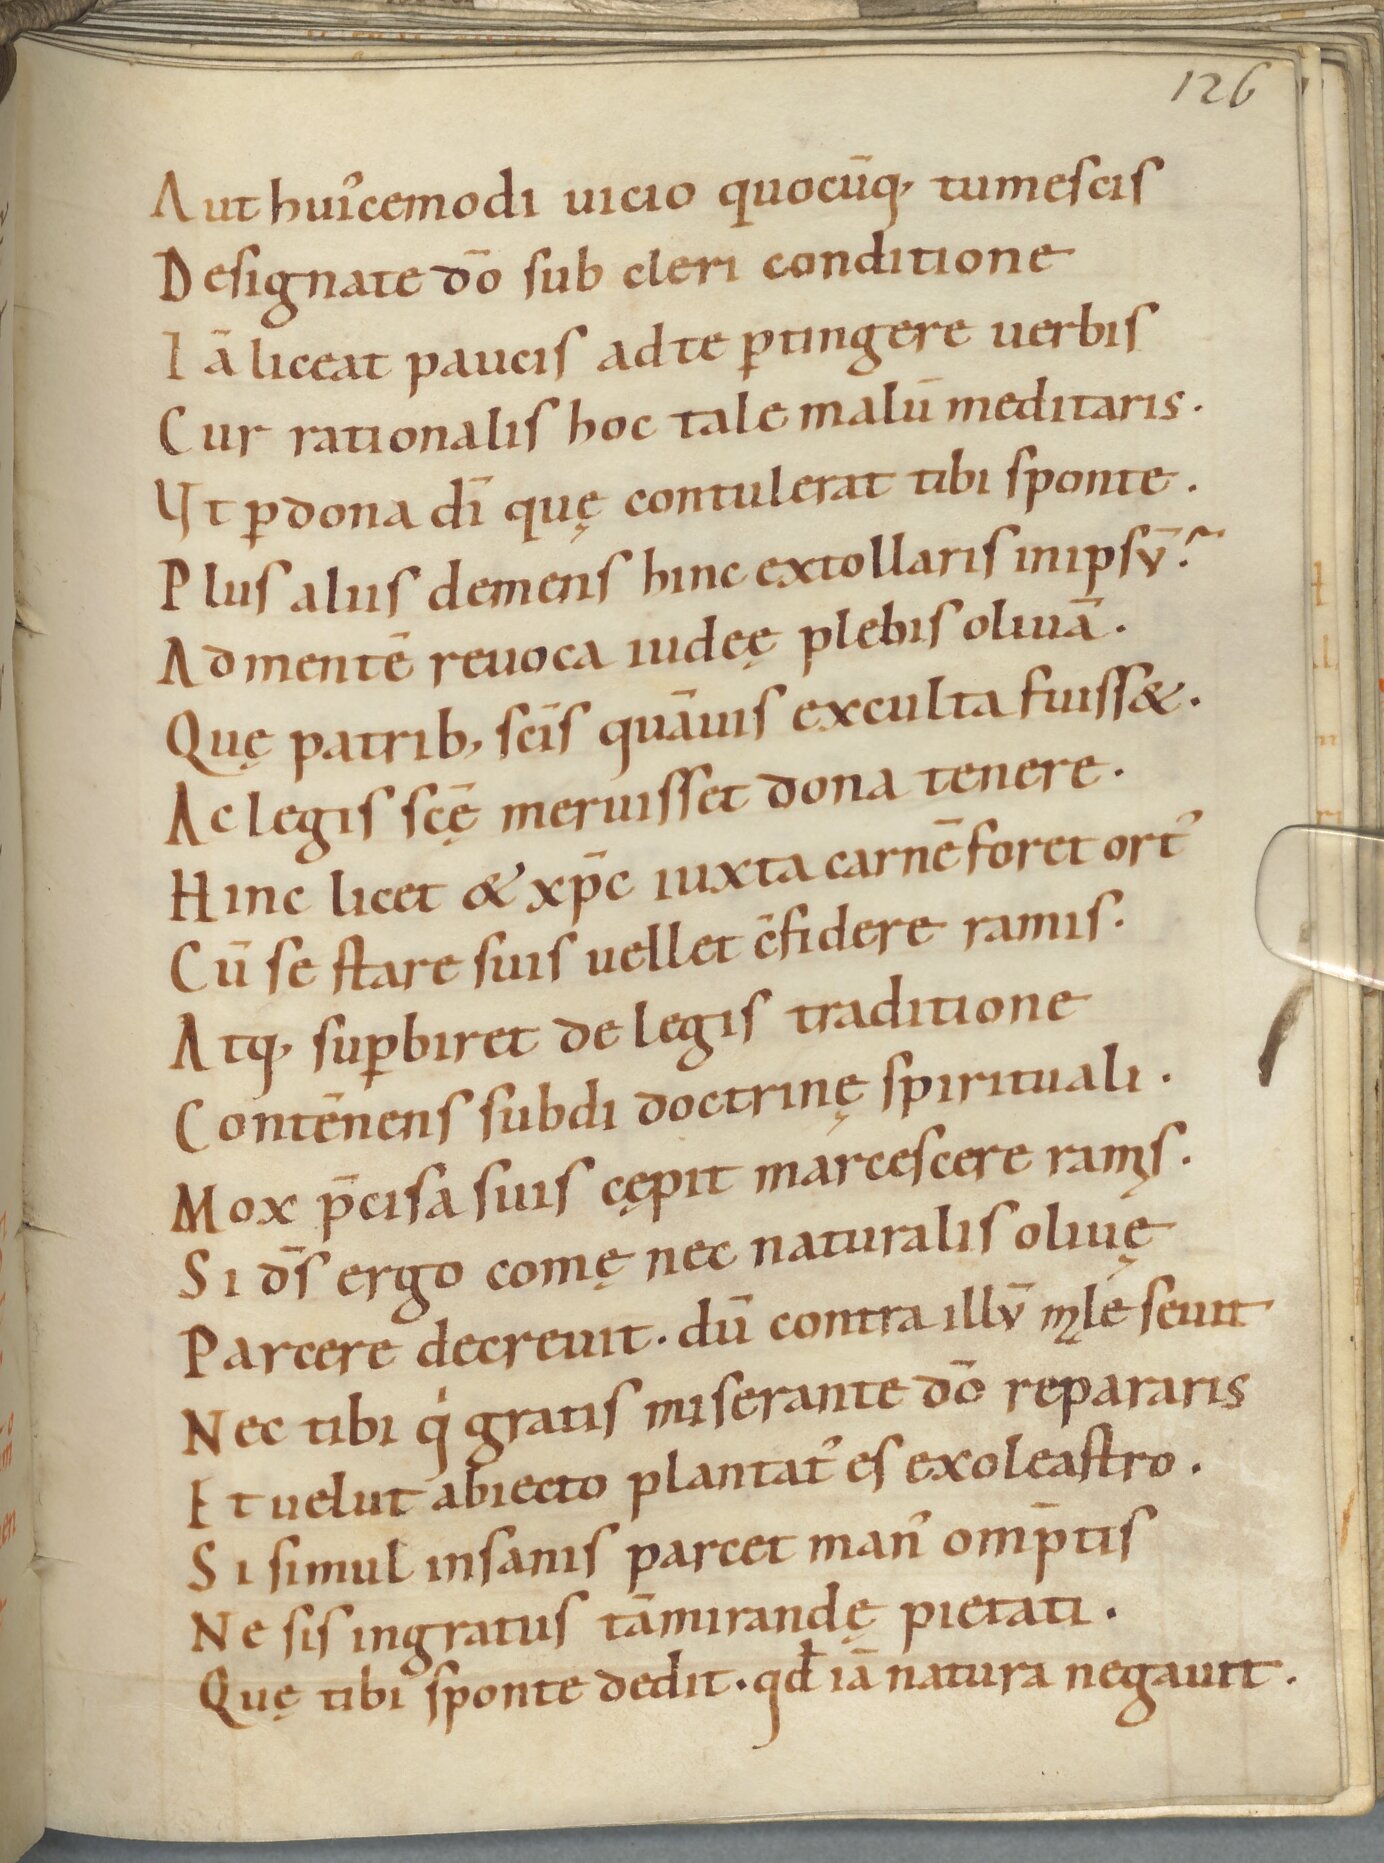 126
Aut huı᾽cemodi uicio quocūq, tumescis
Designate dō sub cleri conditione
Iā liceat paucis ad te ꝑtingere uerbis
Cur rationalis hoc tale malū meditaris.
Vt ꝑ dona dī quę contulerat tibi sponte.
Plus aliis demens hinc extollaris in ipsv̄?
Ad mentē reuoca iudeę plebis oliuā.
Quę patrib, sc̄is quāuis exculta fuiss&.
Ac legis sc̄ę meruisset dona tenere.
Hinc licet & xp̄c iuxta carnē foret ort᾽
Cū se stare suis uellet c̄fidere ramis.
Atq, suꝑbiret de legis traditione
Contēnens subdi doctrinę spirituali.
Mox p̄cisa suis cępit marcescere ramis.
Si d̄s ergo comę nec naturalis oliuę
Parcere decreuit. dū contra illv̄ male seuit
Nec tibi qi gratis miserante dō repararis
Et uelut abiecto plantat᾽ es ex oleastro.
Si simul insanis parcet man᾽ omp̄tis
Ne sis ingratus tā mirandę pietati.
Quę tibi sponte dedit. qđ iā natura negauit.